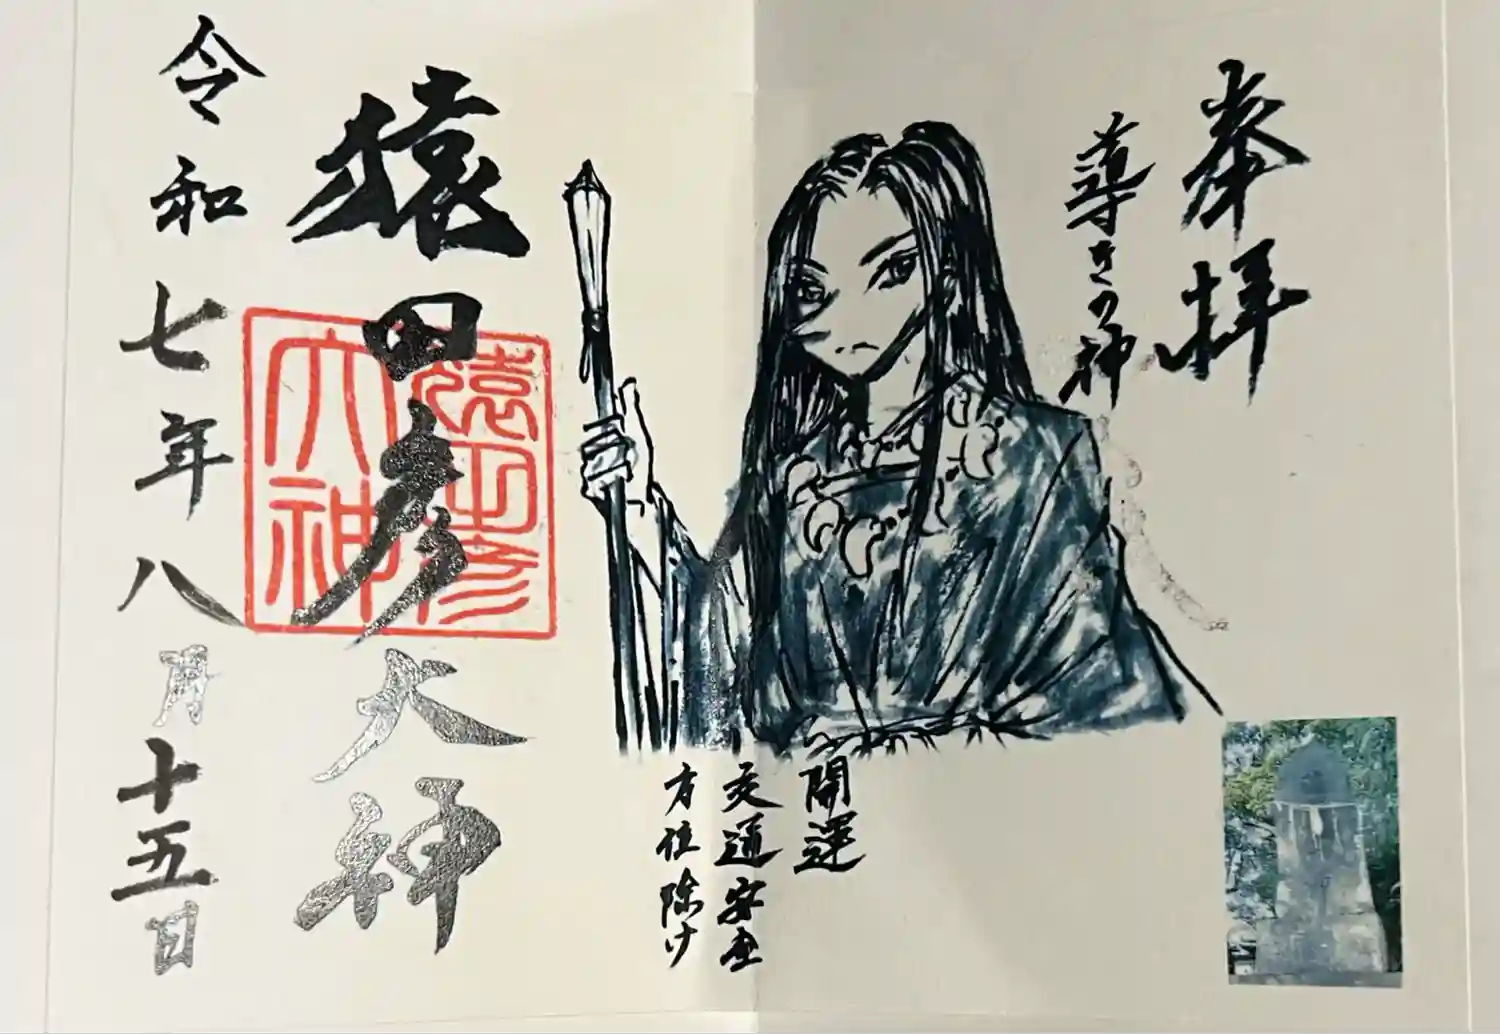 奉拝
導きの神
開運
交通安全
方位除け
猿田彦大神
猿田彦
大神
令和七年八月十五日